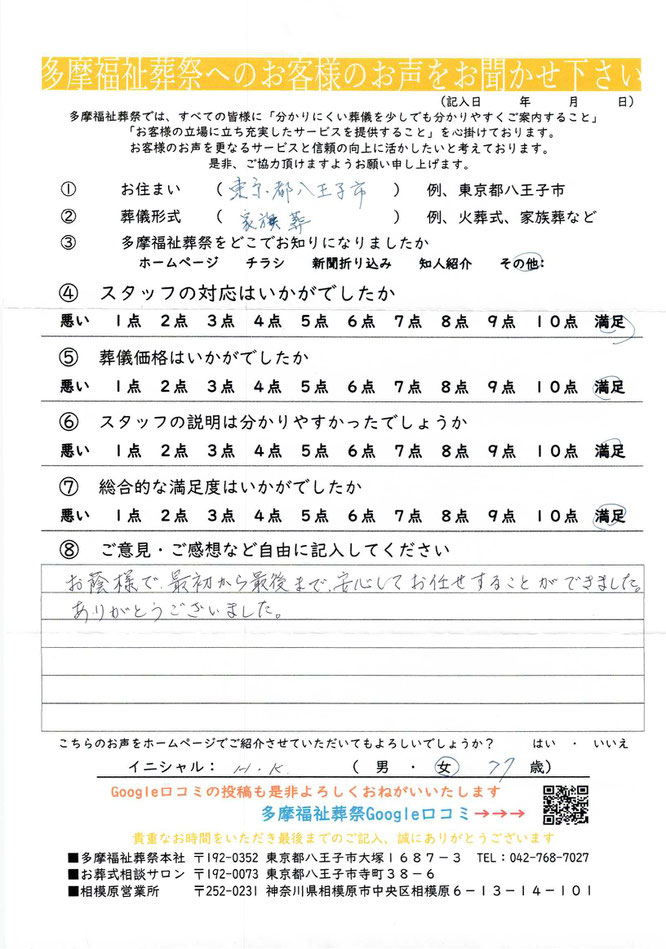 多摩福祉葬祭へのお客様のお声をお聞かせ下さい
(記入日　　年　　月　　日)
多摩福祉葬祭では、すべての皆様に「分かりにくい葬儀を少しでも分かりやすくご案内すること」
「お客様の立場に立ち充実したサービスを提供すること」を心掛けております。
お客様のお声を更なるサービスと信頼の向上に活かしたいと考えております。
是非、ご協力頂けますようお願い申し上げます。
① お住まい （東京都八王子市） 例、東京都八王子市
② 葬儀形式 （家族葬） 例、火葬式、家族葬など
③ 多摩福祉葬祭をどこでお知りになりましたか
ホームページ　チラシ　新聞折り込み　知人紹介　その他：
④ スタッフの対応はいかがでしたか
悪い 1点 2点 3点 4点 5点 6点 7点 8点 9点 10点 満足
⑤ 葬儀価格はいかがでしたか
悪い 1点 2点 3点 4点 5点 6点 7点 8点 9点 10点 満足
⑥ スタッフの説明は分かりやすかったでしょうか
悪い 1点 2点 3点 4点 5点 6点 7点 8点 9点 10点 満足
⑦ 総合的な満足度はいかがでしたか
悪い 1点 2点 3点 4点 5点 6点 7点 8点 9点 10点 満足
⑧ ご意見・ご感想など自由に記入してください
お蔭様で、最初から最後まで、安心してお任せすることができました。
ありがとうございました。
こちらのお声をホームページでご紹介させていただいてもよろしいでしょうか？　はい ・ いいえ
イニシャル： H・K. （ 男 ・ 女 77 歳）
Google口コミの投稿も是非よろしくおねがいいたします
多摩福祉葬祭Google口コミ→→→
貴重なお時間をいただき最後までのご記入、誠にありがとうございます
■多摩福祉葬祭本社 〒192-0352 東京都八王子市大塚１６８７－３　TEL：042-768-7027
■お葬式相談サロン 〒192-0073 東京都八王子市寺町３８－６
■相模原営業所 〒252-0231 神奈川県相模原市中央区相模原６－１３－１４－１０１